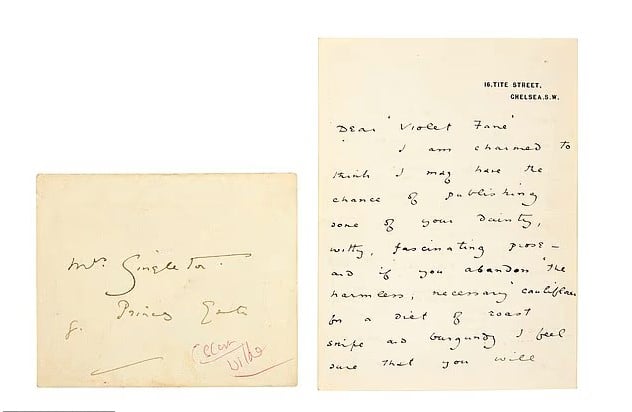 Mrs. Singleton.
Princes Gate
Oscar
Wilde
16, TITE STREET,
CHELSEA. S.W.
Dear "Violet Fane"
I am charmed to
think I may have the
chance of publishing
some of your dainty,
witty, fascinating prose –
and if you abandon "the
harmless, necessary" cauliflower
for a diet of roast
snipe and burgundy I feel
sure that you will